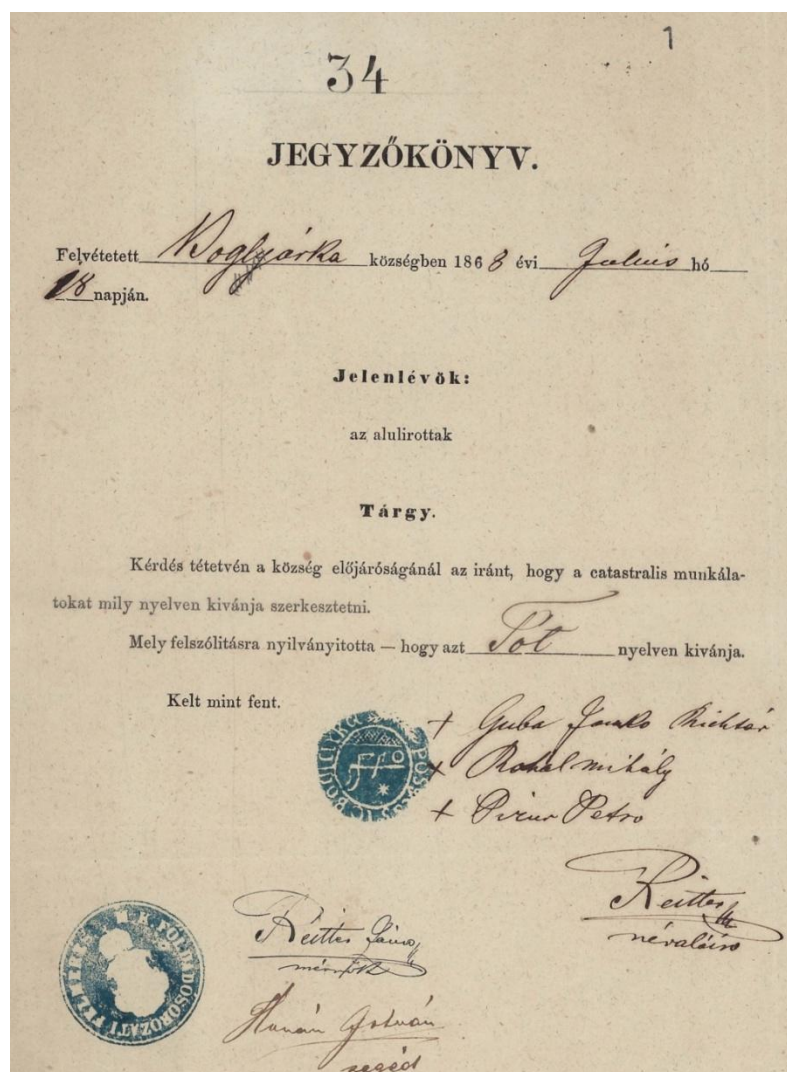 1
34
JEGYZŐKÖNYV.
Felvétetett Boglyárka községben 1868 évi Julius hó
18 napján.
Jelenlévök:
az alulirottak
Tárgy.
Kérdés tétetvén a község előjáróságánál az iránt, hogy a catastralis munkála-
tokat mily nyelven kivánja szerkesztetni.
Mely felszólitásra nyilványitotta — hogy azt Tót nyelven kivánja.
Kelt mint fent.
+ Guba Janko Richtár
+ Rohal mihály
+ Petro
Reitter
névaláiró
Reitter János
mérnök
István
segéd